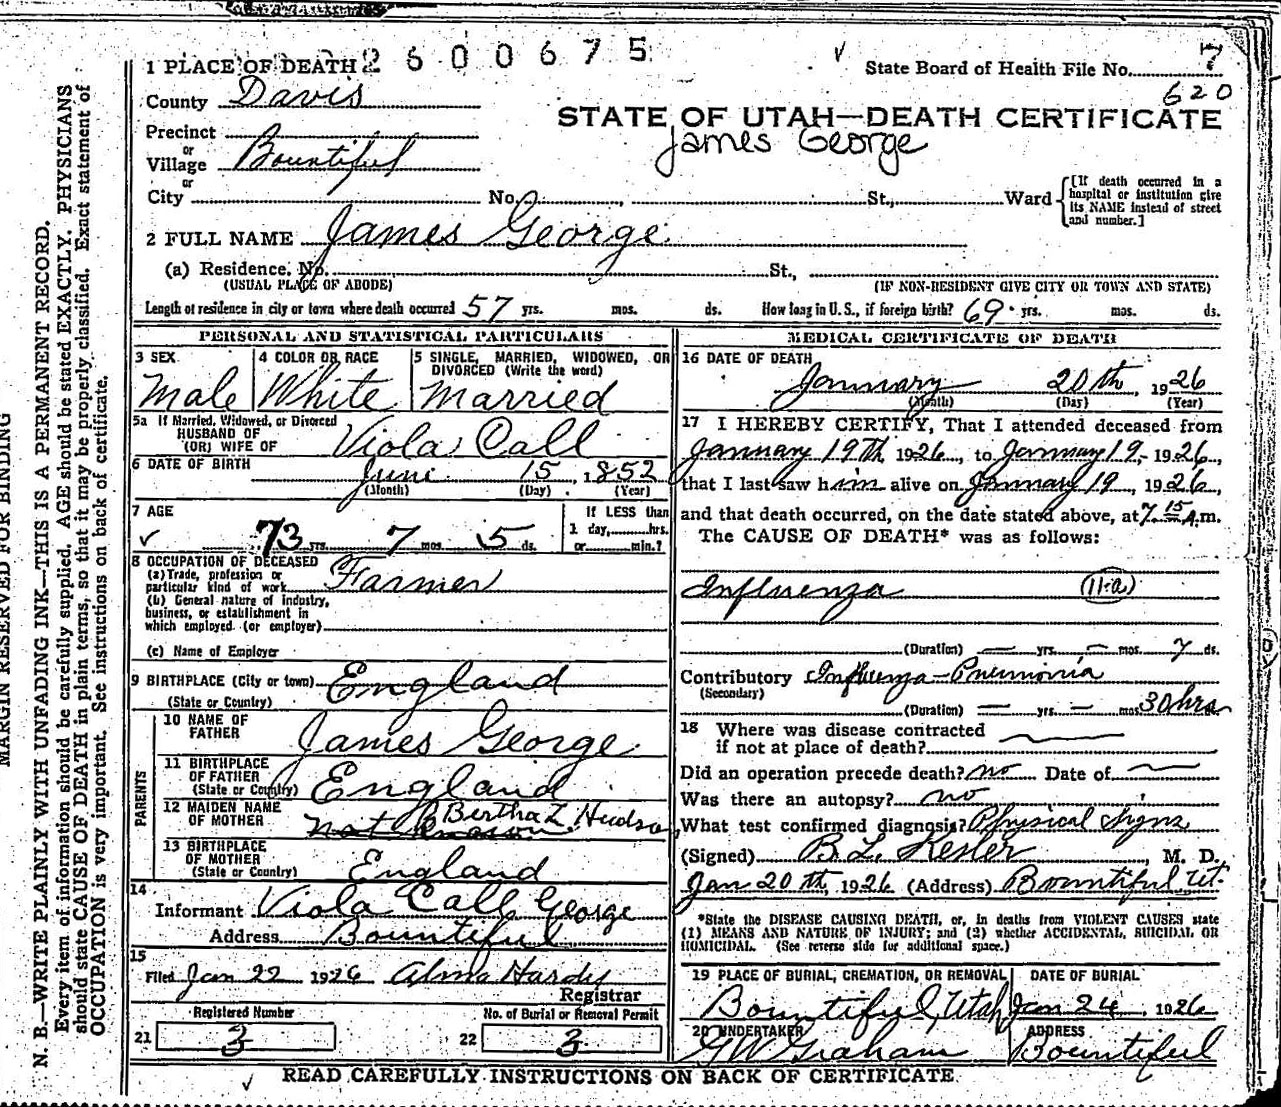 2600675
7
1 PLACE OF DEATH
State Board of Health File No.
620
County Davis
STATE OF UTAH—DEATH CERTIFICATE
James George
Precinct
or
Village Bountiful
or
City No. St., Ward
[If death occurred in a
hospital or institution give
its NAME instead of street
and number.]
2 FULL NAME James George
(a) Residence. No. St.,
(USUAL PLACE OF ABODE) (IF NON-RESIDENT GIVE CITY OR TOWN AND STATE)
Length of residence in city or town where death occurred 57 yrs. mos. ds. How long in U. S., if foreign birth? 69 yrs. mos. ds.
PERSONAL AND STATISTICAL PARTICULARS
3 SEX
Male
4 COLOR OR RACE
White
5 SINGLE, MARRIED, WIDOWED, OR
DIVORCED (Write the word)
Married
5a If Married, Widowed, or Divorced
HUSBAND OF
(OR) WIFE OF
Viola Call
6 DATE OF BIRTH
June 15, 1852
(Month) (Day) (Year)
7 AGE
73 yrs. 7 mos. 5 ds.
If LESS than
1 day, hrs.
or min.?
8 OCCUPATION OF DECEASED
(a) Trade, profession or
particular kind of work Farmer
(b) General nature of industry,
business, or establishment in
which employed (or employer)
(c) Name of Employer
9 BIRTHPLACE (City or town) England
(State or Country)
PARENTS
10 NAME OF
FATHER
James George
11 BIRTHPLACE
OF FATHER
(State or Country) England
12 MAIDEN NAME
OF MOTHER
Bertha L. Hudson
13 BIRTHPLACE
OF MOTHER
(State or Country) England
14
Informant Viola Call George
Address Bountiful
15
Filed Jan 22 1926 Alma Hardy
Registrar
Registered Number
21 3
No. of Burial or Removal Permit
22 3
MEDICAL CERTIFICATE OF DEATH
16 DATE OF DEATH
January 20th, 1926
(Month) (Day) (Year)
17 I HEREBY CERTIFY, That I attended deceased from
January 19th 1926, to January 19, 1926,
that I last saw him alive on January 19, 1926,
and that death occurred, on the date stated above, at 7 15 A.m.
The CAUSE OF DEATH* was as follows:
Influenza (11-a)
(Duration) — yrs. — mos. 7 ds.
Contributory Influenza-Pneumonia
(Secondary)
(Duration) — yrs. — mos. 30 hrs
18 Where was disease contracted
if not at place of death?
Did an operation precede death? no Date of —
Was there an autopsy? no
What test confirmed diagnosis? Physical Signs
(Signed) B. L. Kesler, M. D.
Jan 20th, 1926 (Address) Bountiful Ut.
*State the DISEASE CAUSING DEATH, or, in deaths from VIOLENT CAUSES state
(1) MEANS AND NATURE OF INJURY; and (2) whether ACCIDENTAL, SUICIDAL OR
HOMICIDAL. (See reverse side for additional space.)
19 PLACE OF BURIAL, CREMATION, OR REMOVAL
Bountiful, Utah
DATE OF BURIAL
Jan 24, 1926
20 UNDERTAKER
G W Graham
ADDRESS
Bountiful
READ CAREFULLY INSTRUCTIONS ON BACK OF CERTIFICATE
MARGIN RESERVED FOR BINDING
N. B.—WRITE PLAINLY WITH UNFADING INK—THIS IS A PERMANENT RECORD.
Every item of information should be carefully supplied. AGE should be stated EXACTLY. PHYSICIANS
should state CAUSE OF DEATH in plain terms, so that it may be properly classified. Exact statement of
OCCUPATION is very important. See instructions on back of certificate.